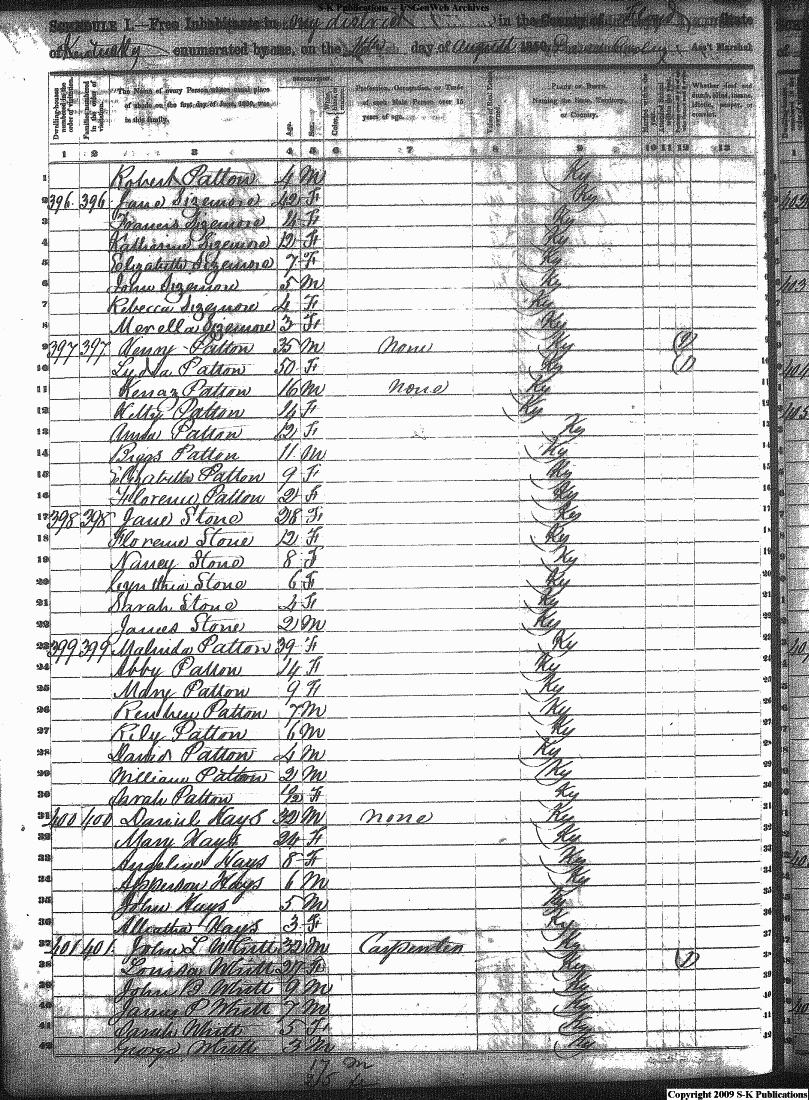 S-K Publications - USGenWeb Archives
SCHEDULE I.—Free Inhabitants in My district in the County of Floyd State
of Kentucky enumerated by me, on the 16th day of August 1850. Ass't Marshal
Dwelling-houses numbered in the order of visitation.
Families numbered in the order of visitation.
The Name of every Person whose usual place of abode on the first day of June, 1850, was in this family.
Age.
Sex.
Profession, Occupation, or Trade of each Male Person over 15 years of age.
Value of Real Estate
Place of Birth. Naming the State, Territory, or Country.
Whether deaf and dumb, blind, insane, idiotic, pauper, or convict.
1 2 3 4 5 6 7 8 9 10 11 12 13
1 Robert Patton 4 M Ky
2 396 396 Jane Sizemore 42 F Ky
3 Francis Sizemore 14 F Ky
4 Katharine Sizemore 12 F Ky
5 Elizabeth Sizemore 7 F Ky
6 John Sizemore 5 M Ky
7 Rebecca Sizemore 4 F Ky
8 Merella Sizemore 3 F Ky
9 397 397 Henry Patton 35 M None Ky (1)
10 Lydia Patton 50 F Ky (1)
11 Kenaz Patton 16 M None Ky
12 Kitty Patton 14 F Ky
13 Anna Patton 12 F Ky
14 Biggs Patton 11 M Ky
15 Elizabeth Patton 9 F Ky
16 Florence Patton 2 F Ky
17 398 398 Jane Stone 28 F Ky
18 Florence Stone 12 F Ky
19 Nancy Stone 8 F Ky
20 Cynthia Stone 6 F Ky
21 Sarah Stone 4 F Ky
22 James Stone 2 M Ky
23 399 399 Malinda Patton 39 F Ky
24 Abby Patton 14 F Ky
25 Mary Patton 9 F Ky
26 Reuben Patton 7 M Ky
27 Rily Patton 6 M Ky
28 David Patton 4 M Ky
29 William Patton 2 M Ky
30 Sarah Patton F Ky
31 400 400 Daniel Hays 32 M None Ky
32 Mary Hays 24 F Ky
33 Angeline Hays 8 F Ky
34 Apperson Hays 6 M Ky
35 John Hays 5 M Ky
36 Hays 3 F Ky
37 401 401 John L Whitt 32 M Carpenter Ky
38 Louisa Whitt 27 F Ky (1)
39 John B Whitt 9 M Ky
40 James P Whitt 7 M Ky
41 Sarah Whitt 5 F Ky
42 George Whitt 3 M Ky
17 M
25 F
Copyright 2009 S-K Publications